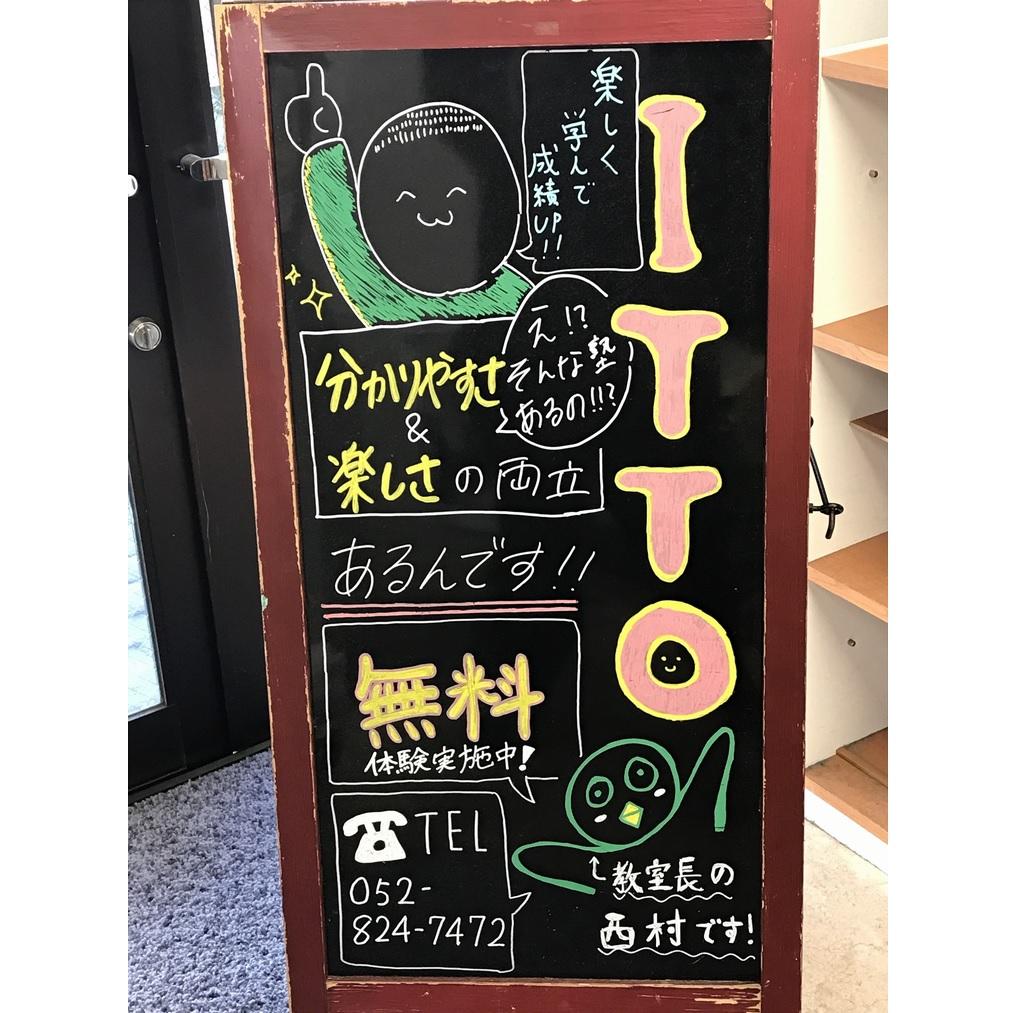 ITTO
楽しく
学んで
成績UP!!
え!?
そんな塾
あるの!!?
分かりやすさ
&
楽しさの両立
あるんです!!
無料
体験実施中!
TEL
052-
824-7472
教室長の
西村です!